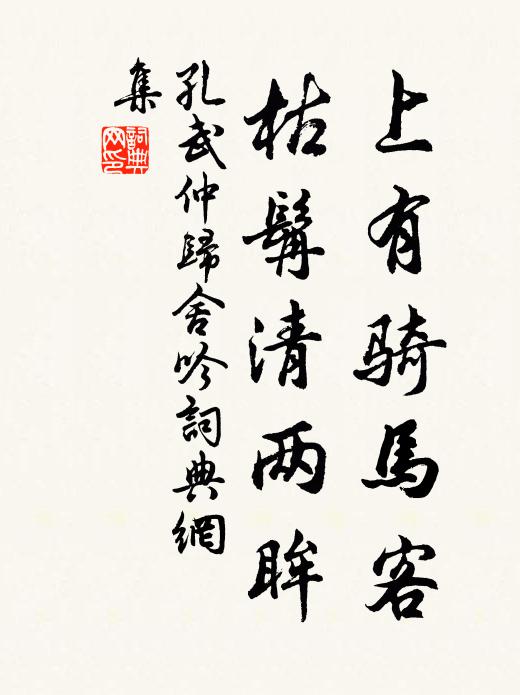 上有骑馬客
枯髯清两眸
孔武仲歸舍吟詞典網
集
詞典网印